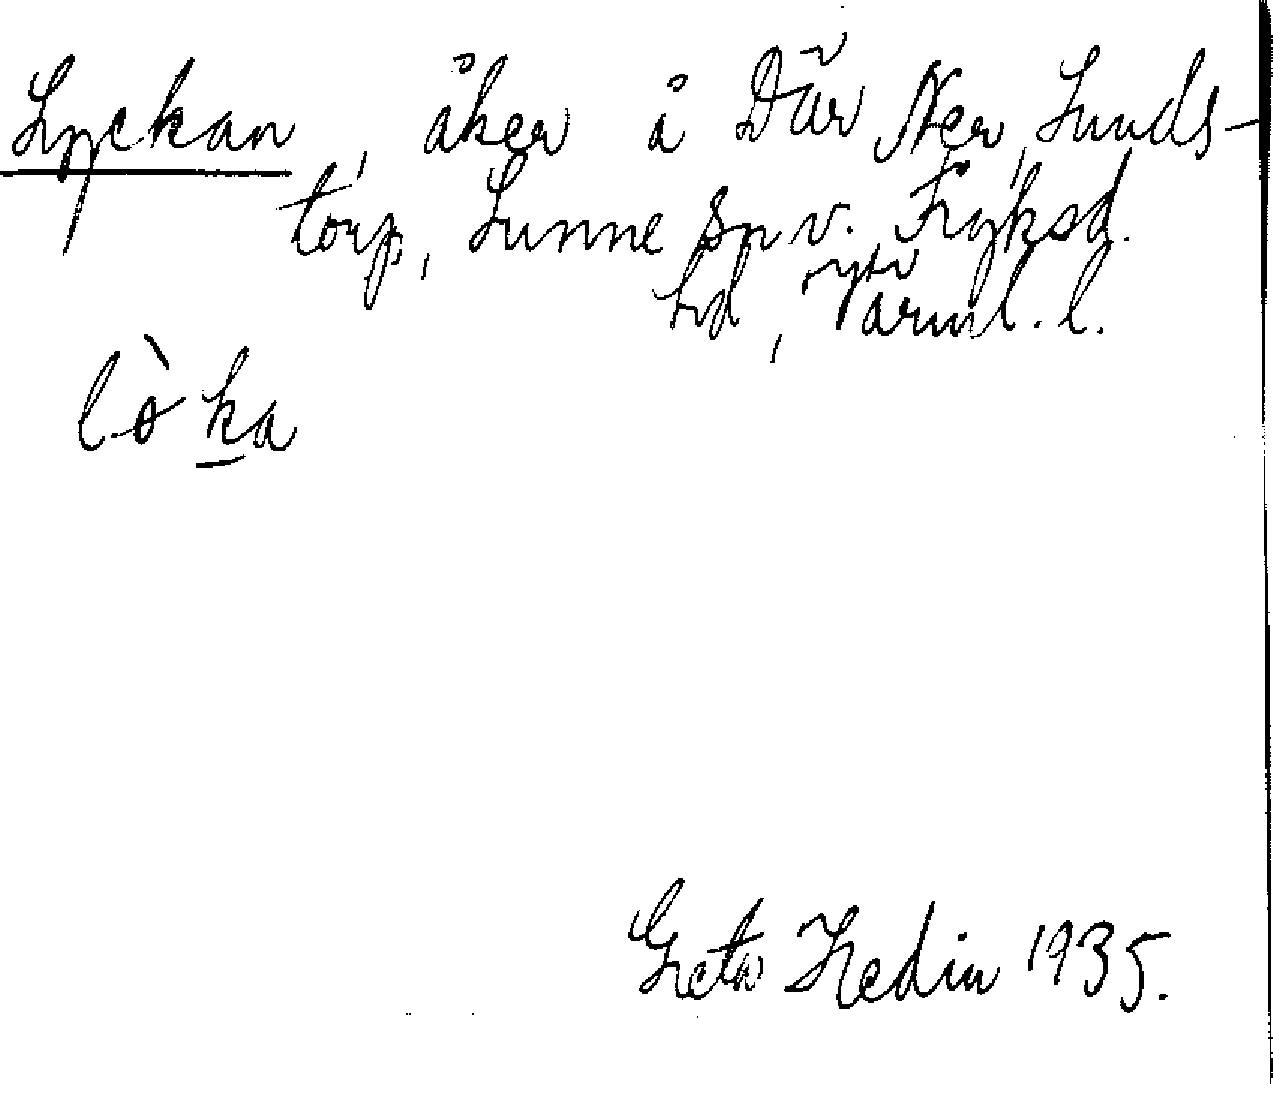 Lyckan, åker å Där Ner, Sunds-
torp, Sunne sn v. Fryksd.
hd, Värml. l.
l.ò ka
Greta Hedin 1935.